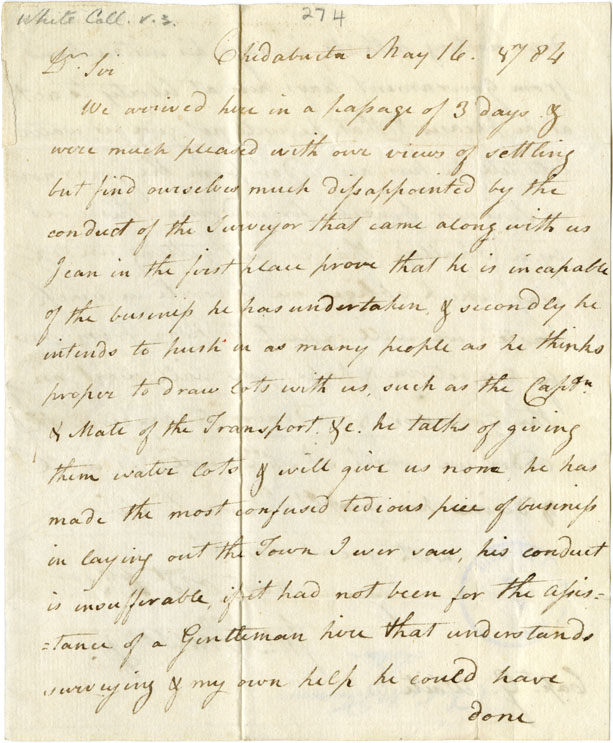 White Coll. v.3.
274
Chedabucta May 16. 1784
Dr. Sir
We arived here in a passage of 3 days &
were much pleased with our views of settling
but find ourselves much dissappointed by the
conduct of the Surveyor that came along with us
I can in the first place prove that he is incapable
of the business he has undertaken, & secondly he
intends to push in as many people as he thinks
proper to draw Lots with us, such as the Captn.
& Mate of the Transport, &c. he talks of giving
them water Lots & will give us none he has
made the most confused tedious piece of business
in laying out the Town I ever saw, his conduct
is insufferable, if it had not been for the assis=
=tance of a Gentleman here that understands
surveying & my own help he could have
done